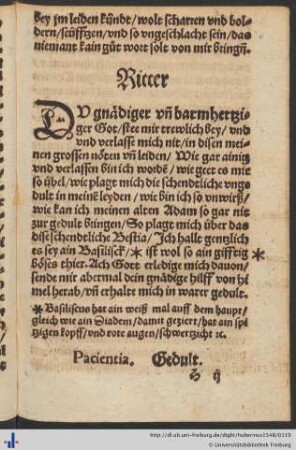 bey jm leiden kündt/wolt scharren vnd bol-
dern/seüfftzen/vnd so vngeschlacht sein/das
niemant kain gůt wort solt von mir bringñ.
Ritter
DV gnädiger vñ barmhertzi-
ger Got/stee mir trewlich bey/vnd
vnd verlasse mich nit/in disen mei-
nen grossen nöten vñ leiden/Wie gar ainig
vnd verlassen bin ich wordẽ/wie geet es mir
so übel/wie plagt mich die schendtliche vnge-
dult in meinẽ leyden/wie bin ich so vnwirß/
wie kan ich meinen alten Adam so gar nit
zur gedult bringen/So plagt mich über das
dise schendtliche Bestia/Ich halt gentzlich
es sey ain Basilisck/* ist wol so ain gifftig *
böses thier. Ach Gott erledige mich dauon/
sende mir abermal dein gnädige hilff von hy
mel herab/vñ erhalte mich in warer gedult.
* Basiliscus hat ain weiß mal auff dem haupt/
gleich wie ain Diadem/damit geziert/hat ain spi
tzigen kopff/vnd rote augen/schwertzicht ꝛc.
Pacientia. Gedult.
H ij
http://dl.ub.uni-freiburg.de/diglit/hubernus1548/0119
© Universitätsbibliothek Freiburg